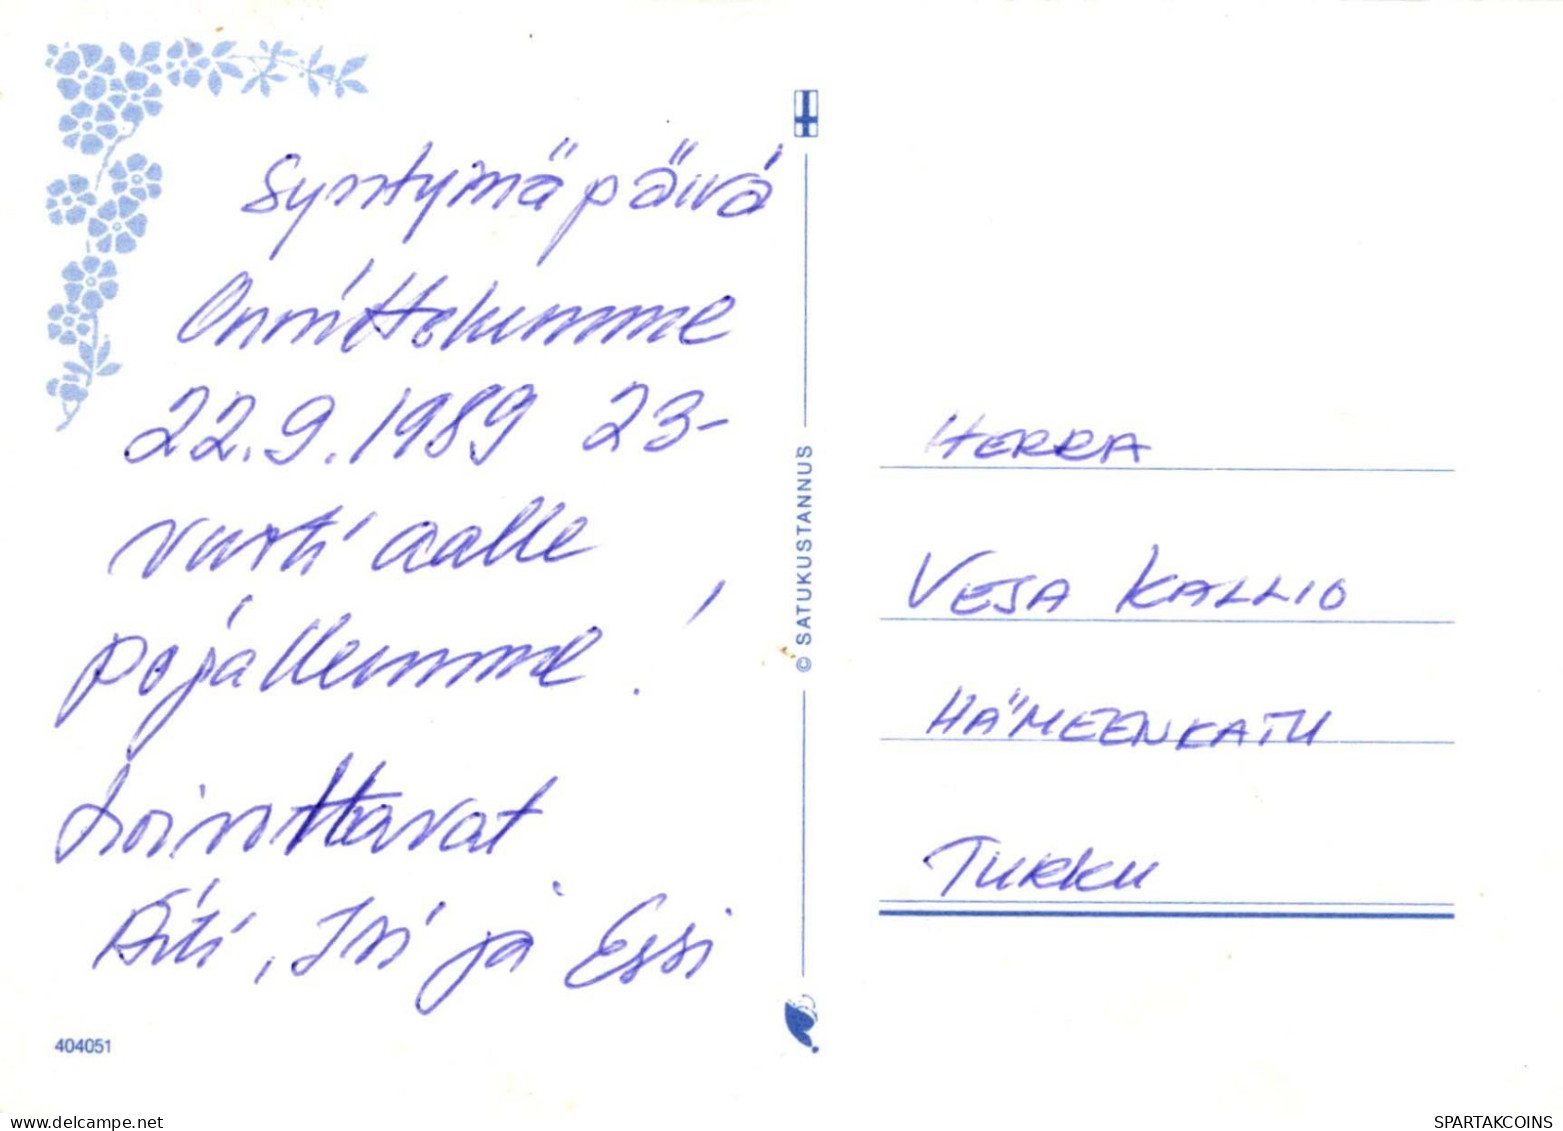 Syntymäpäivä
Onnittelumme
22.9.1989 23-
vuotiaalle
pojallemme!
toivottavat
Äiti, Isi ja Essi
404051
© SATUKUSTANNUS
HERRA
VESA KALLIO
HÄMEENKATU
TURKU
www.delcampe.net
SPARTAKCOINS